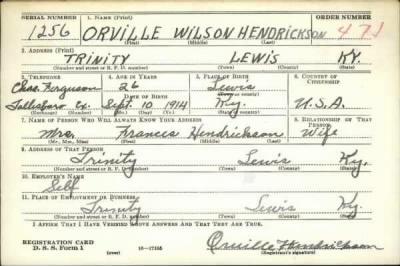 SERIAL NUMBER 1. NAME (Print) ORDER NUMBER
1256 ORVILLE WILSON HENDRICKSON 471
(First) (Middle) (Last)
2. ADDRESS (Print)
TRINITY LEWIS KY.
(Number and street or R. F. D. number) (Town) (County) (State)
3. TELEPHONE 4. AGE IN YEARS 5. PLACE OF BIRTH 6. COUNTRY OF CITIZENSHIP
Chas. Ferguson 26 Lewis
DATE OF BIRTH (Town or county)
Tollesboro Ex. Sept. 10 1914 Ky. U.S.A.
(Exchange) (No.) (Mo.) (Day) (Yr.) (State or country)
7. NAME OF PERSON WHO WILL ALWAYS KNOW YOUR ADDRESS 8. RELATIONSHIP OF THAT PERSON
Mrs. Frances Hendrickson Wife
(Mr., Mrs., Miss) (First) (Middle) (Last)
9. ADDRESS OF THAT PERSON
Trinity Lewis Ky.
(Number and street or R. F. D. number) (Town) (County) (State)
10. EMPLOYER'S NAME
Self
11. PLACE OF EMPLOYMENT OR BUSINESS
Trinity Lewis Ky.
(Number and street or R. F. D. number) (Town) (County) (State)
I AFFIRM THAT I HAVE VERIFIED ABOVE ANSWERS AND THAT THEY ARE TRUE.
REGISTRATION CARD
D. S. S. Form 1 (over) 16—17105 Orville Hendrickson
(Registrant's signature)